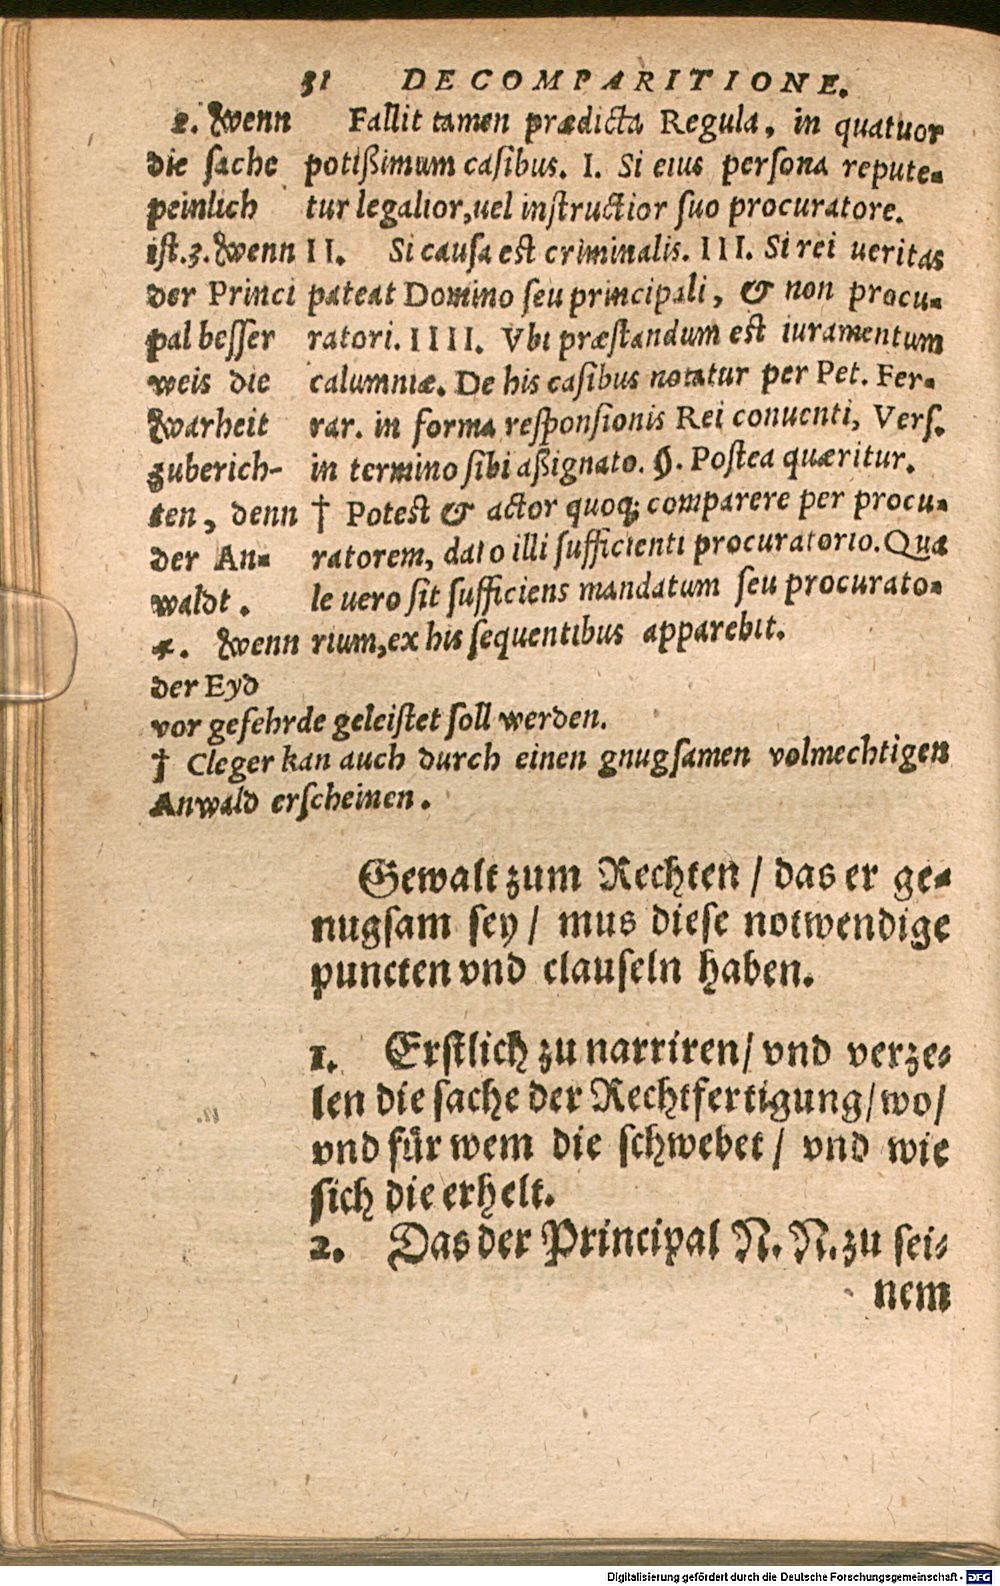 31 DE COMPARITIONE.
2. Wenn
die sache
peinlich
ist. 3. Wenn
der Princi
pal besser
weis die
Warheit
zuberich-
ten, denn
der An-
waldt.
4. Wenn
der Eyd
vor gefehrde geleistet soll werden.
† Cleger kan auch durch einen gnugsamen volmechtigen
Anwald erscheinen.
Fallit tamen prædicta Regula, in quatuor
potißimum casibus. I. Si eius persona repute-
tur legalior, uel instructior suo procuratore.
II. Si causa est criminalis. III. Si rei ueritas
pateat Domino seu principali, & non procu-
ratori. IIII. Vbi præstandum est iuramentum
calumniæ. De his casibus notatur per Pet. Fer-
rar. in forma responsionis Rei conuenti, Vers.
in termino sibi aßignato. §. Postea quæritur.
† Potest & actor quoq; comparere per procu-
ratorem, dato illi sufficienti procuratorio. Qua
le uero sit sufficiens mandatum seu procurato-
rium, ex his sequentibus apparebit.
Gewalt zum Rechten / das er ge-
nugsam sey / mus diese notwendige
puncten vnd clauseln haben.
1. Erstlich zu narriren / vnd verze-
len die sache der Rechtfertigung / wo /
vnd für wem die schwebet / vnd wie
sich die erhelt.
2. Das der Principal N. N. zu sei-
nem
Digitalisierung gefördert durch die Deutsche Forschungsgemeinschaft - DFG